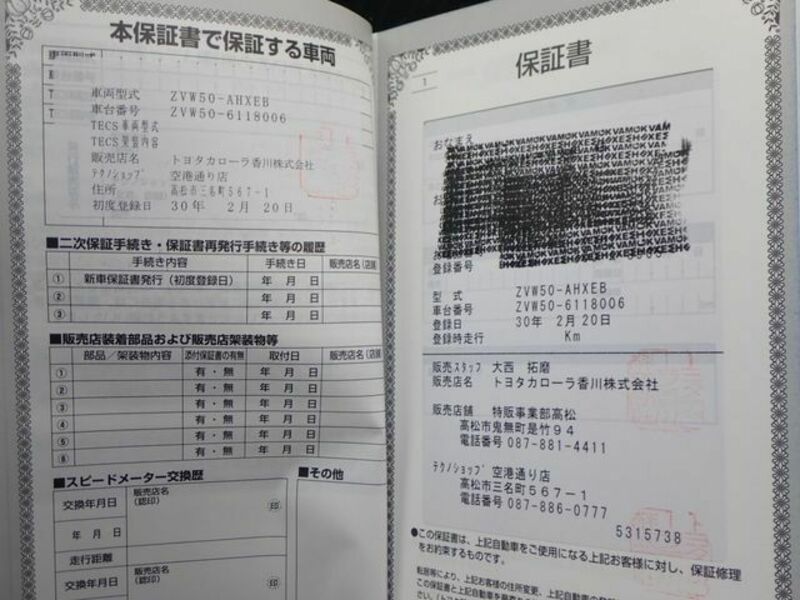 本保証書で保証する車両
車両型式 ZVW50-AHXEB
車台番号 ZVW50-6118006
TECS車両型式
TECS架装内容
販売店名 トヨタカローラ香川株式会社
テクノショップ 空港通り店
住所 高松市三名町567-1
初度登録日 30年 2月 20日
■二次保証手続き・保証書再発行手続き等の履歴
手続き内容 手続き日 販売店名(店舗
① 新車保証書発行(初度登録日) 年 月 日
② 年 月 日
③ 年 月 日
■販売店装着部品および販売店架装物等
部品/架装物内容 添付保証書の有無 取付日 販売店名(店舗
① 有・無 年 月 日
② 有・無 年 月 日
③ 有・無 年 月 日
④ 有・無 年 月 日
⑤ 有・無 年 月 日
⑥ 有・無 年 月 日
■スピードメーター交換歴
交換年月日 販売店名
(認印)
印
年 月 日
走行距離
交換年月日 販売店名
(認印)
印
■その他
保証書
1
おなまえ
登録番号
型式 ZVW50-AHXEB
車台番号 ZVW50-6118006
登録日 30年 2月 20日
登録時走行 Km
販売スタッフ 大西 拓磨
販売店名 トヨタカローラ香川株式会社
販売店舗 特販事業部高松
高松市鬼無町是竹94
電話番号 087-881-4411
テクノショップ 空港通り店
高松市三名町567-1
電話番号 087-886-0777
5315738
●この保証書は、上記自動車をご使用になる上記お客様に対し、保証修理
をお約束するものです。
転居等により、上記お客様の住所変更、上記自動車の
この保証書と上記自動車を